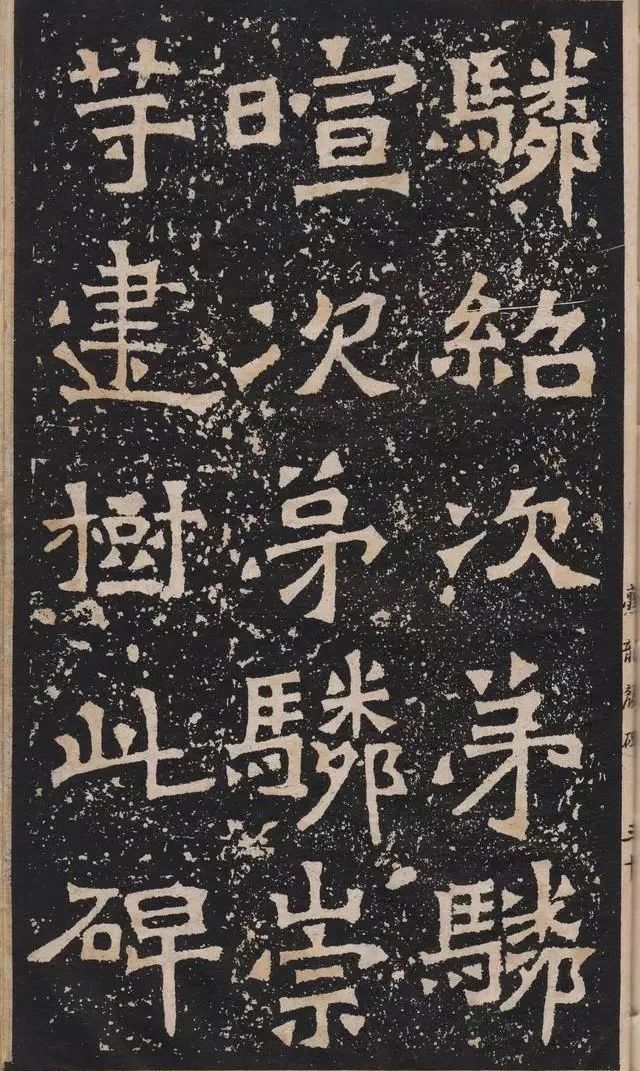 驎紹次弟驎
暄次弟驎崇
等建樹此碑
爨龍顏碑
三十